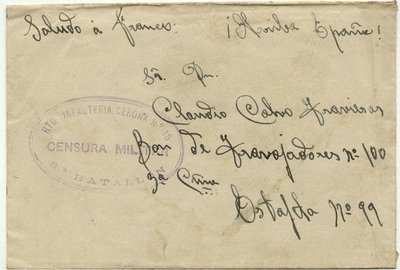 Saludo á Franco. ¡Arriba España!
Sr. Dn.
Claudio Calvo Travieso
Bon de Travajadores nº 100
3ª Cñia
Estafeta Nº 99
RTO. INFANTERIA GERONA N.º 18
CENSURA MILITAR
6º BATALLON